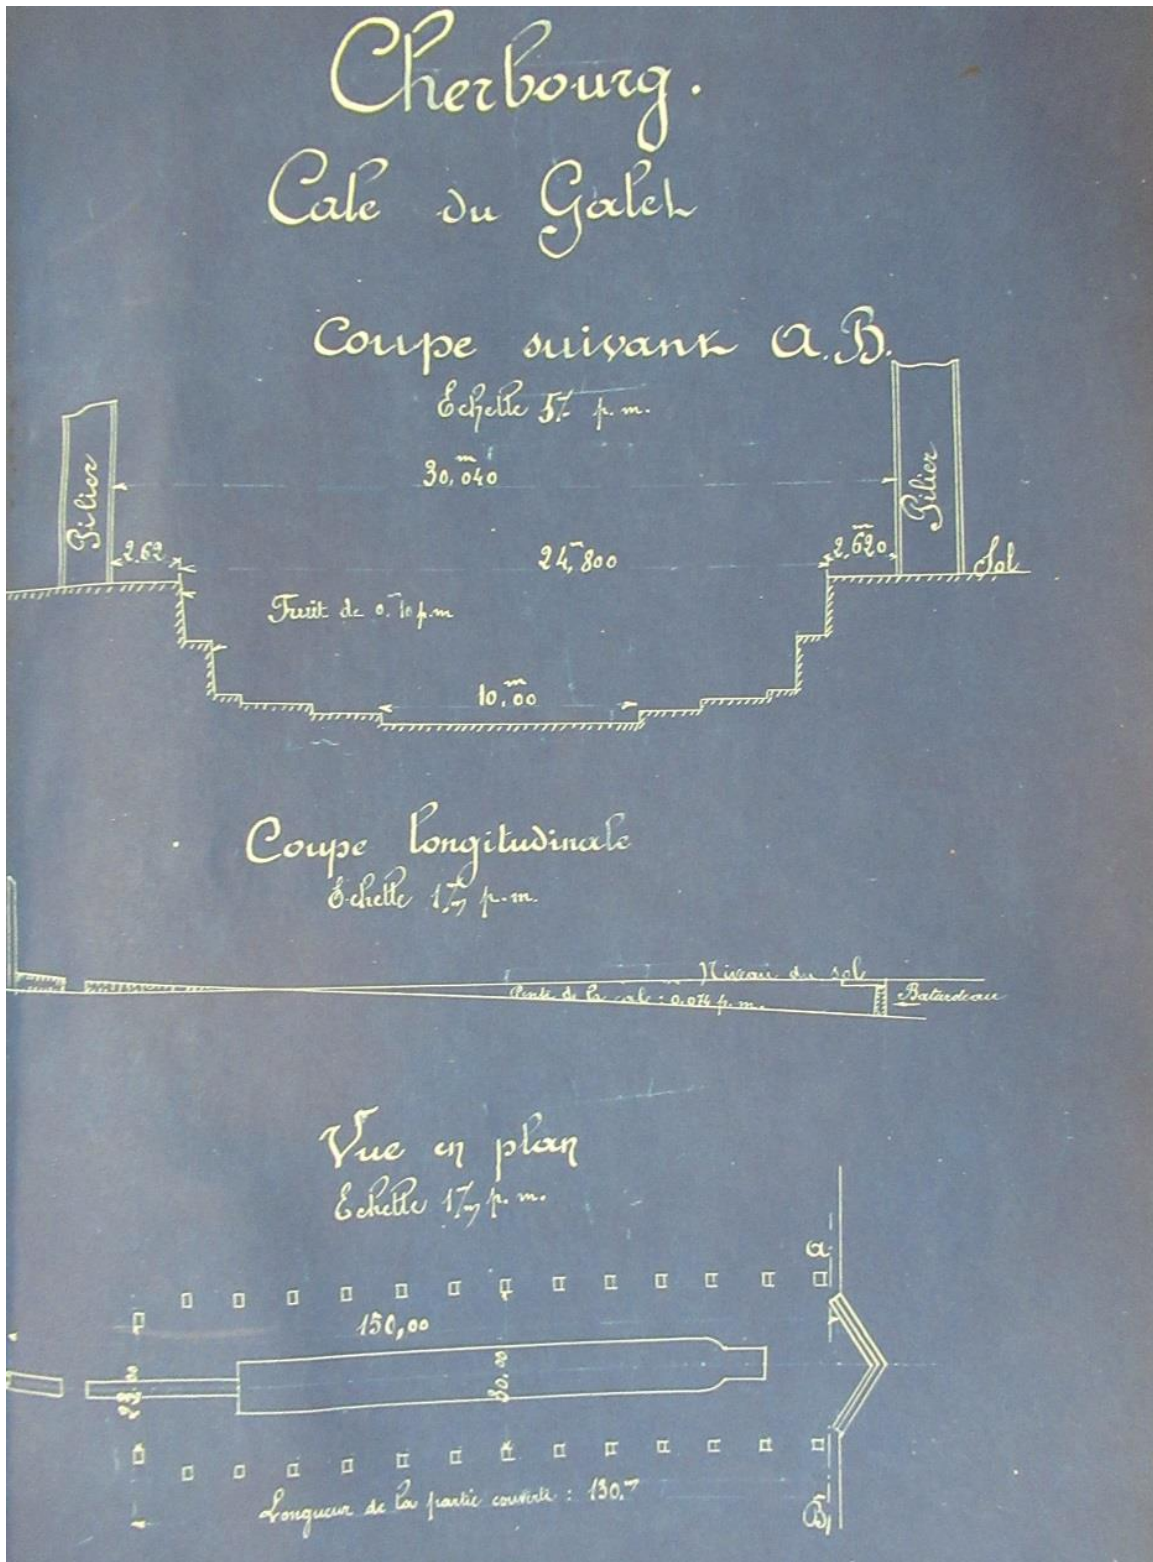 Cherbourg.
Cale du Galet
Coupe suivant A.B.
Echelle 5% p.m.
30,m040
Pilier
Pilier
2,62
24,m800
2,m620
Sol
Fruit de 0,m10 p.m
10,m00
Coupe longitudinale
Echelle 1%m p.m.
Niveau du sol
Pente de la cale : 0.074 p.m.
Batardeau
Vue en plan
Echelle 1%m p.m.
A
150,00
30.00
Longueur de la partie couverte : 130,m
B